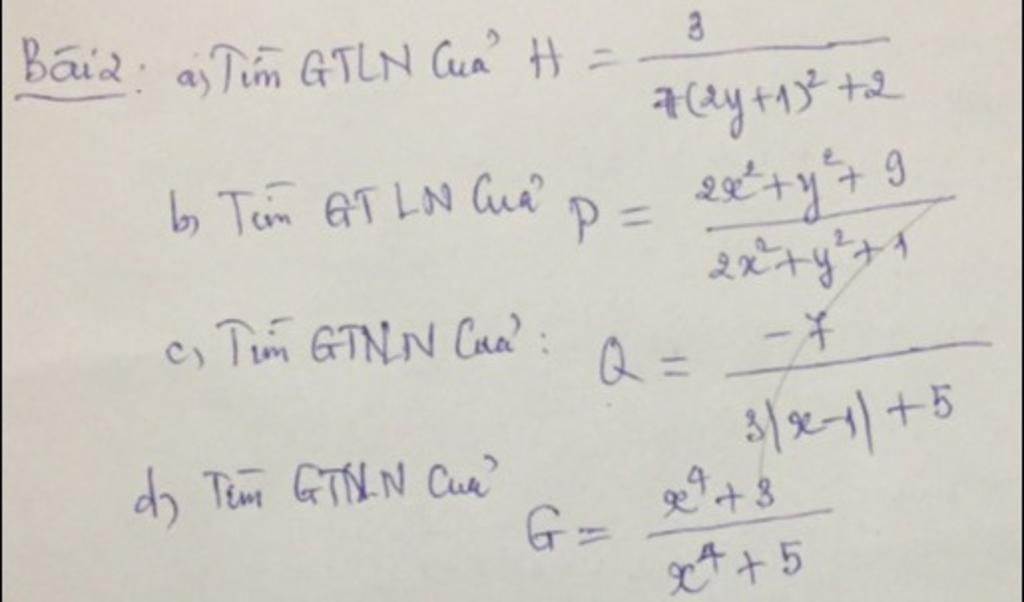 Bài 2: a) Tìm GTLN Của H = 3 / (7(2y+1)² + 2)
b) Tìm GTLN Của P = (2x² + y² + 9) / (2x² + y² + 1)
c) Tìm GTNN Của: Q = -7 / (3|x-1| + 5)
d) Tìm GTNN Của G = (x⁴ + 3) / (x⁴ + 5)